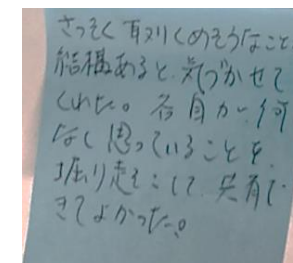 さっそく取りくめそうなこと
結構あると、気づかせて
くれた。各自が、何
なく思っていることを、
掘り起こして、共有で
きてよかった。